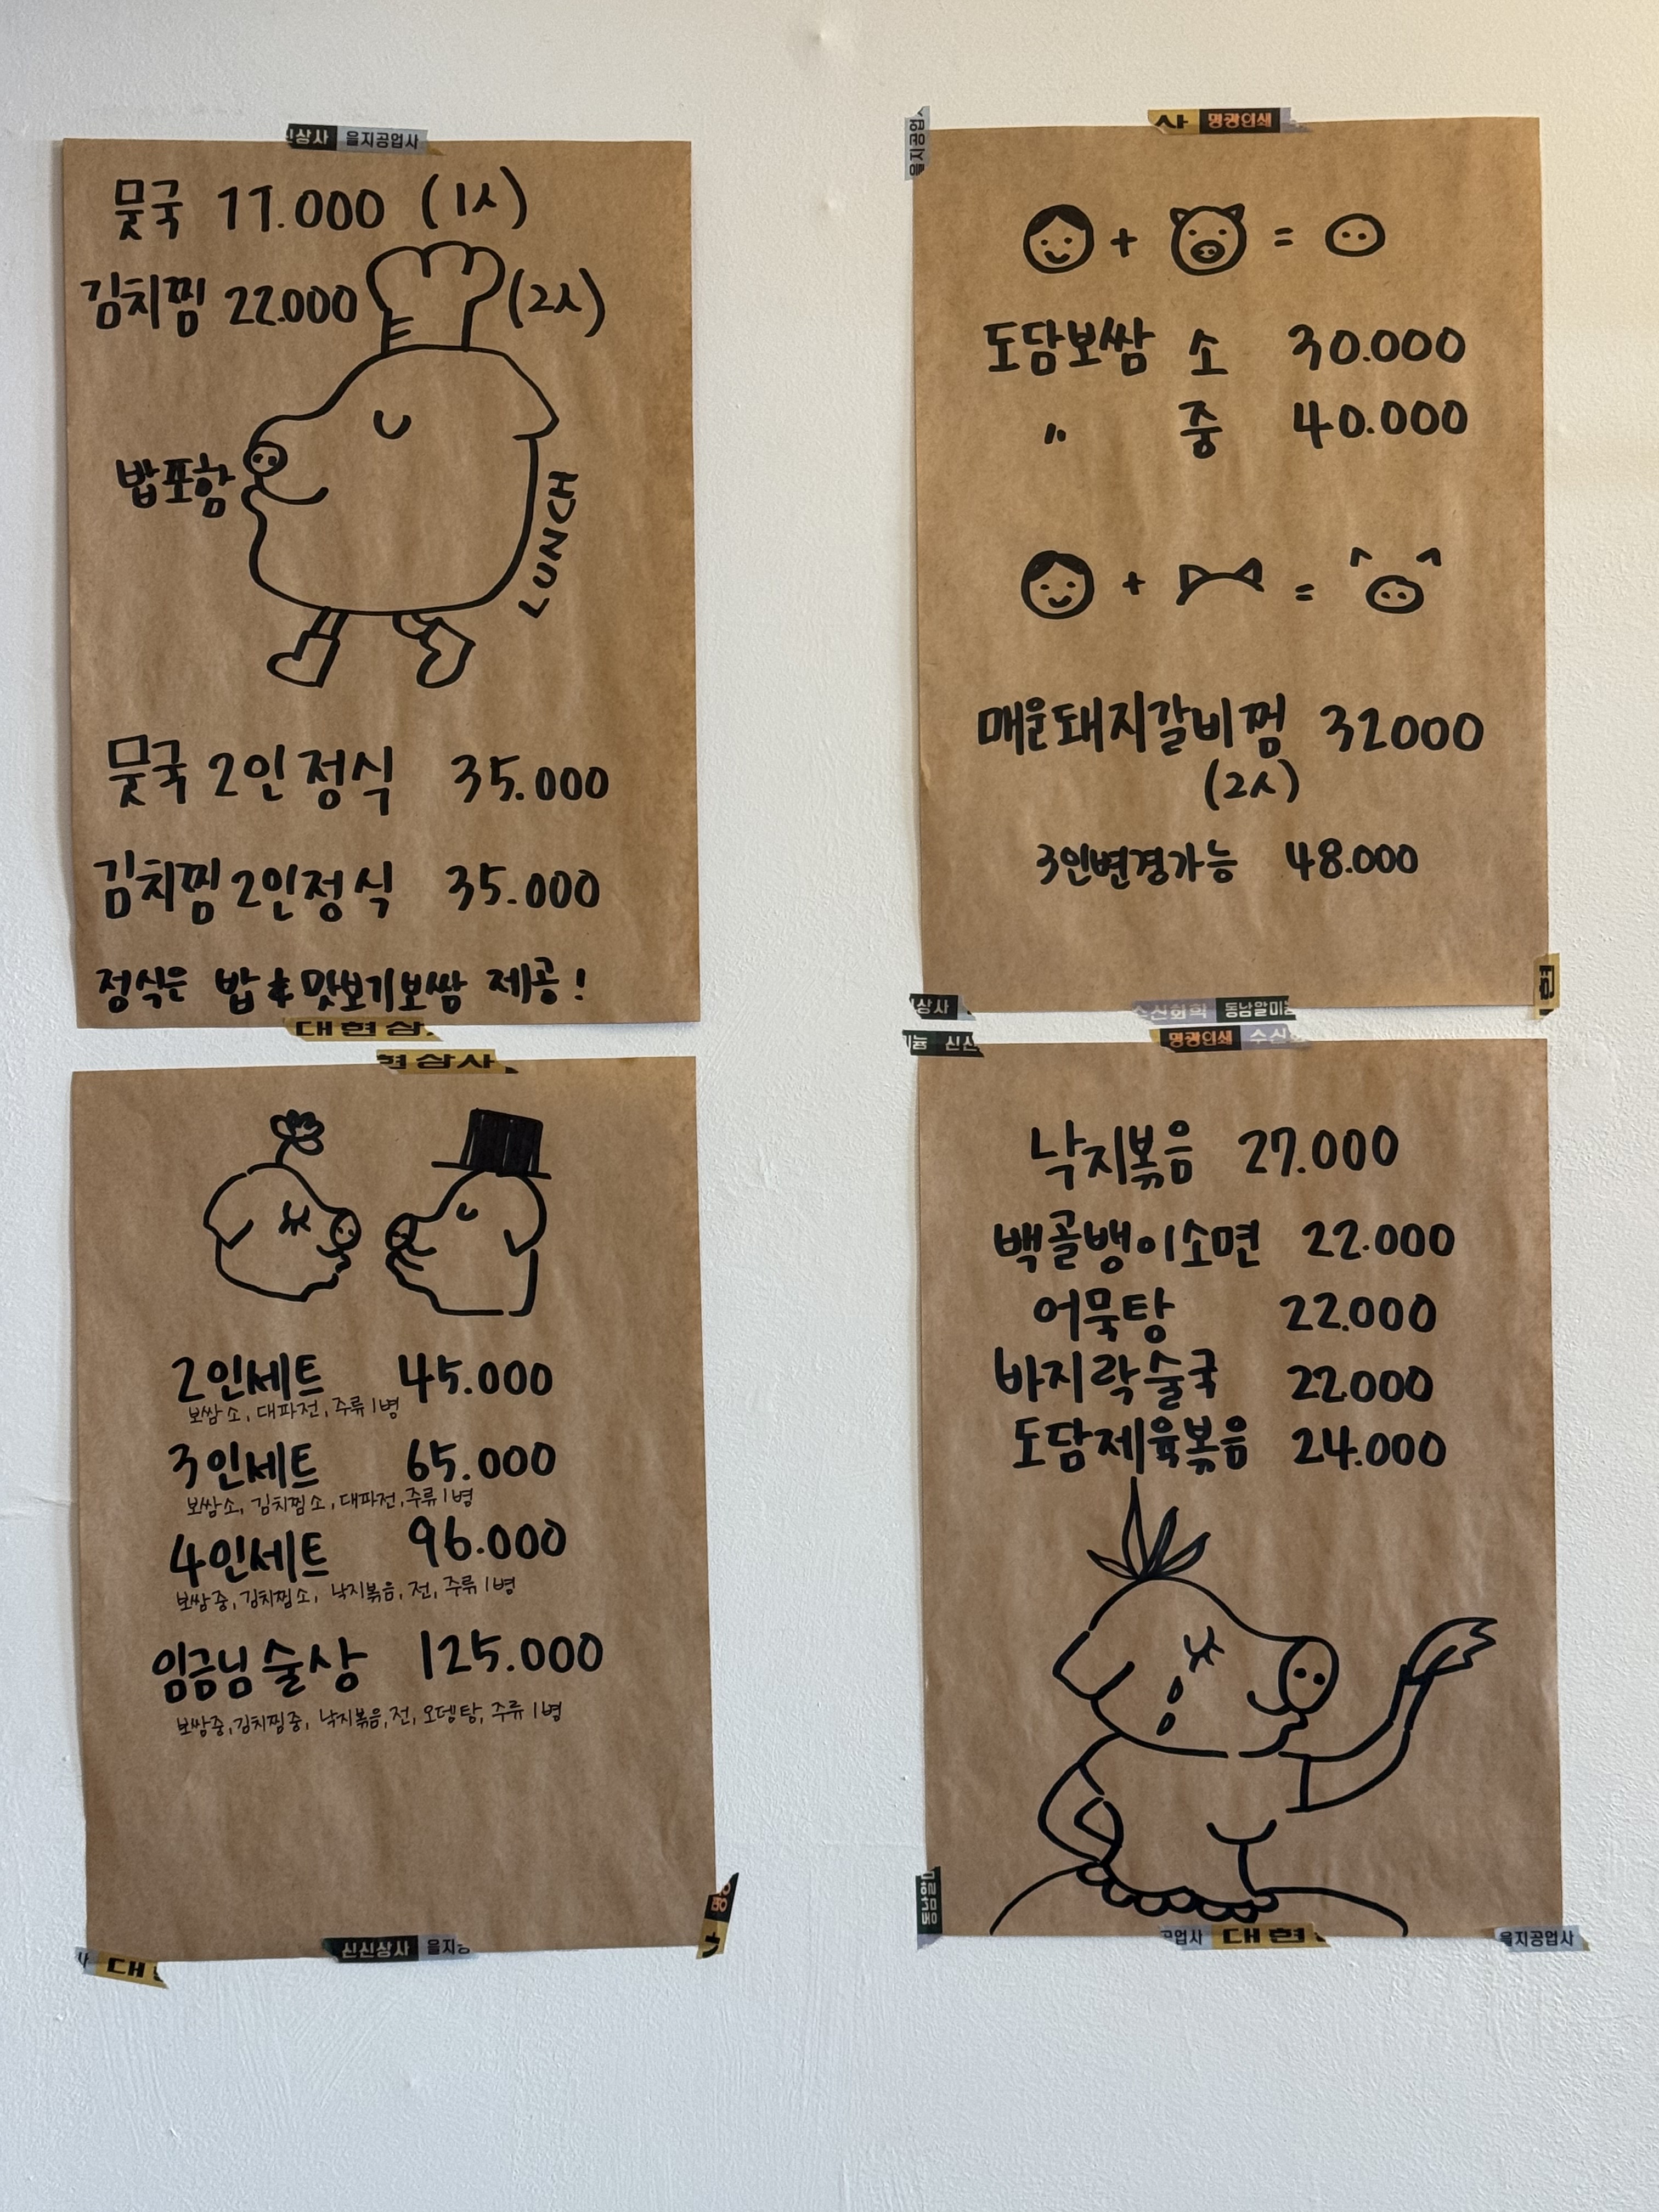 신상사 을지공업사
뭇국 11.000 (1人)
김치찜 22.000 (2人)
밥포함
LUNCH
뭇국 2인 정식 35.000
김치찜 2인정식 35.000
정식은 밥 & 맛보기보쌈 제공!
대현상
현상사
2인세트 45.000
보쌈소, 대파전, 주류1병
3인세트 65.000
보쌈소, 김치찜소, 대파전, 주류1병
4인세트 96.000
보쌈중, 김치찜소, 낙지볶음, 전, 주류1병
임금님 술상 125.000
보쌈중, 김치찜중, 낙지볶음, 전, 오뎅탕, 주류1병
대
신신상사 을지공
을지공업
사 명광인쇄
+ =
도담보쌈 소 30.000
〃 중 40.000
+ =
매운돼지갈비찜 32000
(2人)
3인변경가능 48.000
상사
수신화학 동남알미늄
현
늄 신신
명광인쇄 수신
낙지볶음 27.000
백골뱅이소면 22.000
어묵탕 22.000
바지락술국 22000
도담제육볶음 24.000
동남알미
공업사 대현
을지공업사